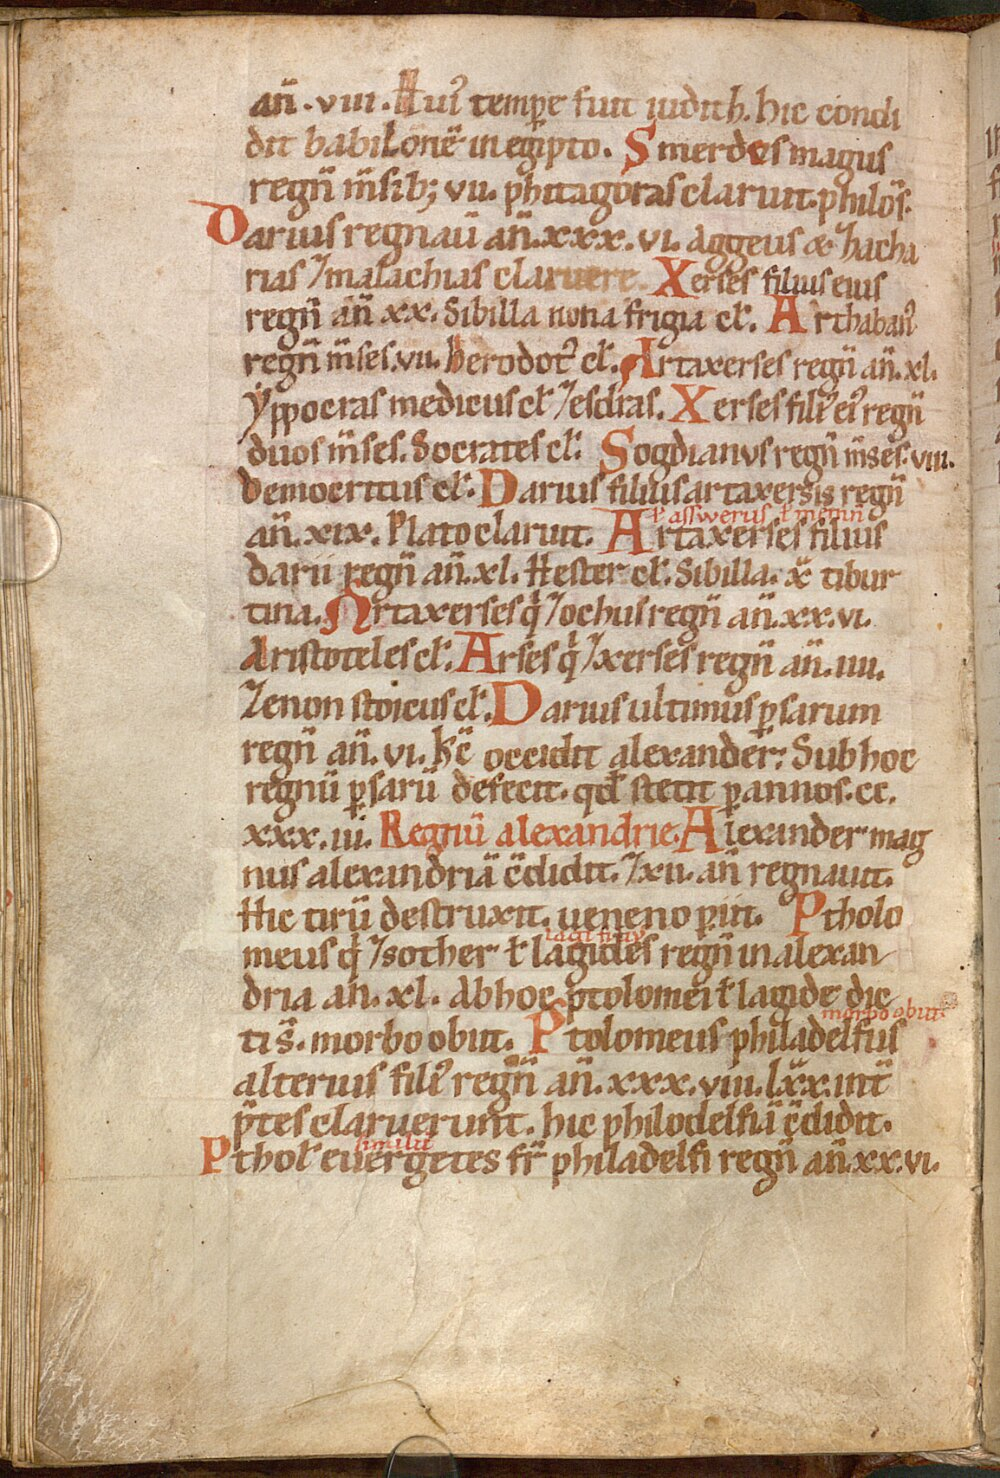 añ . viii . Huiꝰ tempꝑe fuit iudith. hic condi
dit babilonē in egipto. Smerdes magus
regñ m̄sib; vii. phitagoras claruit. philos̄.
Darius regnaū añ. xxx. vi. Aggeus & zacha
rias ⁊ malachias claruere. Xerses filius eius
regñ añ xx. Sibilla nona frigia cł. Arthabanꝰ
regñ m̄ses. vii. herodotꝰ cł. Artaxerses regñ añ. xl.
yppocras medicus cł ⁊ esdras. Xerses filiꝰ eiꝰ regñ
duos m̄ses. Socrates cł. Sogdianus regñ m̄ses. viii.
Democritus cł. Darius filius artaxersis regñ
ł asswerus ł memñ
añ. xix. Plato claruit. Artaxerses filius
darii regñ añ. xl. Hester cł. Sibilla. x̄ tibur
tina. Artaxerses q̇ ⁊ ochus regñ añ. xx. vi.
Aristoteles cł. Arses q̇ ⁊ xerses regñ añ. iiii.
Zenon stoicus cł. Darius ultimus ꝑsarum
regñ añ. vi. hc̄ occidit alexander. Sub hoc
regnū ꝑsarū defecit. qđ stetit ꝑ annos. cc.
xxx. iii. Regnū alexandrie. Alexander mag
nus alexandriā c̄didit. ⁊ xii. añ regnauit.
Hic tirū destruxit. ueneno ꝑiit. Ptholo
lagi filiꝰ
meus q̇ ⁊ sother ł lagides regñ in alexan
dria añ. xl. Ab hoc ptolomei ł lagide dic
morbo obiit
ti s̄. morbo obiit. Ptolomeus philadelfus
alterius filiꝰ regñ añ. xxx. viii. lxx. int̄
p̄tes claruerunt. hic philodelfiā c̄didit.
similit̄
Pthoł euergetes fr̄ philadelfi regñ añ. xx. vi.